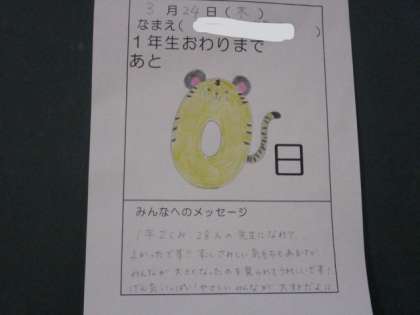 3月24日(木)
なまえ( )
1年生おわりまで
あと
0
日
みんなへのメッセージ
1年2くみ、28人の先生になれて、
よかったです！すこしさみしい気もちもあるけど
みんなが大きくなったのを見られてうれしいです！
げんきいっぱい やさしいみんなが 大すきだよ